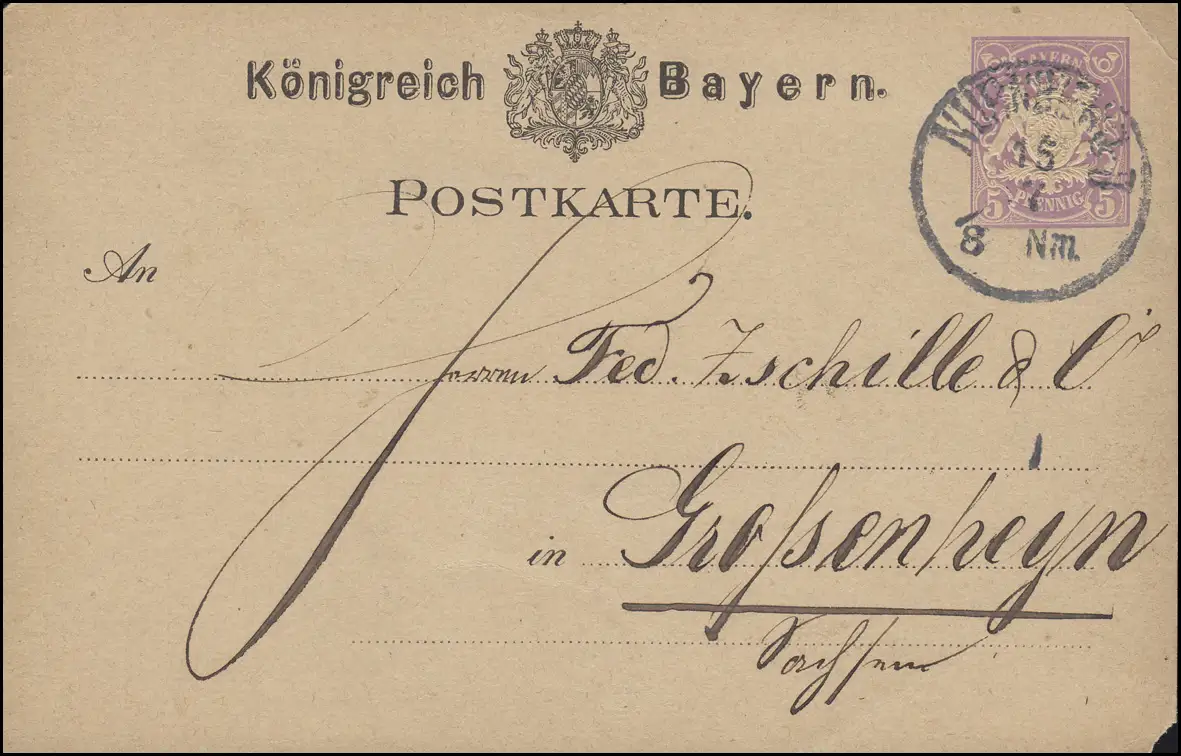 Königreich Bayern.
BAYERN
5 PFENNIG 5
15
8 Nm.
POSTKARTE.
An
Herren Fed. Zschille & Co
in Großenheyn
Sachsen